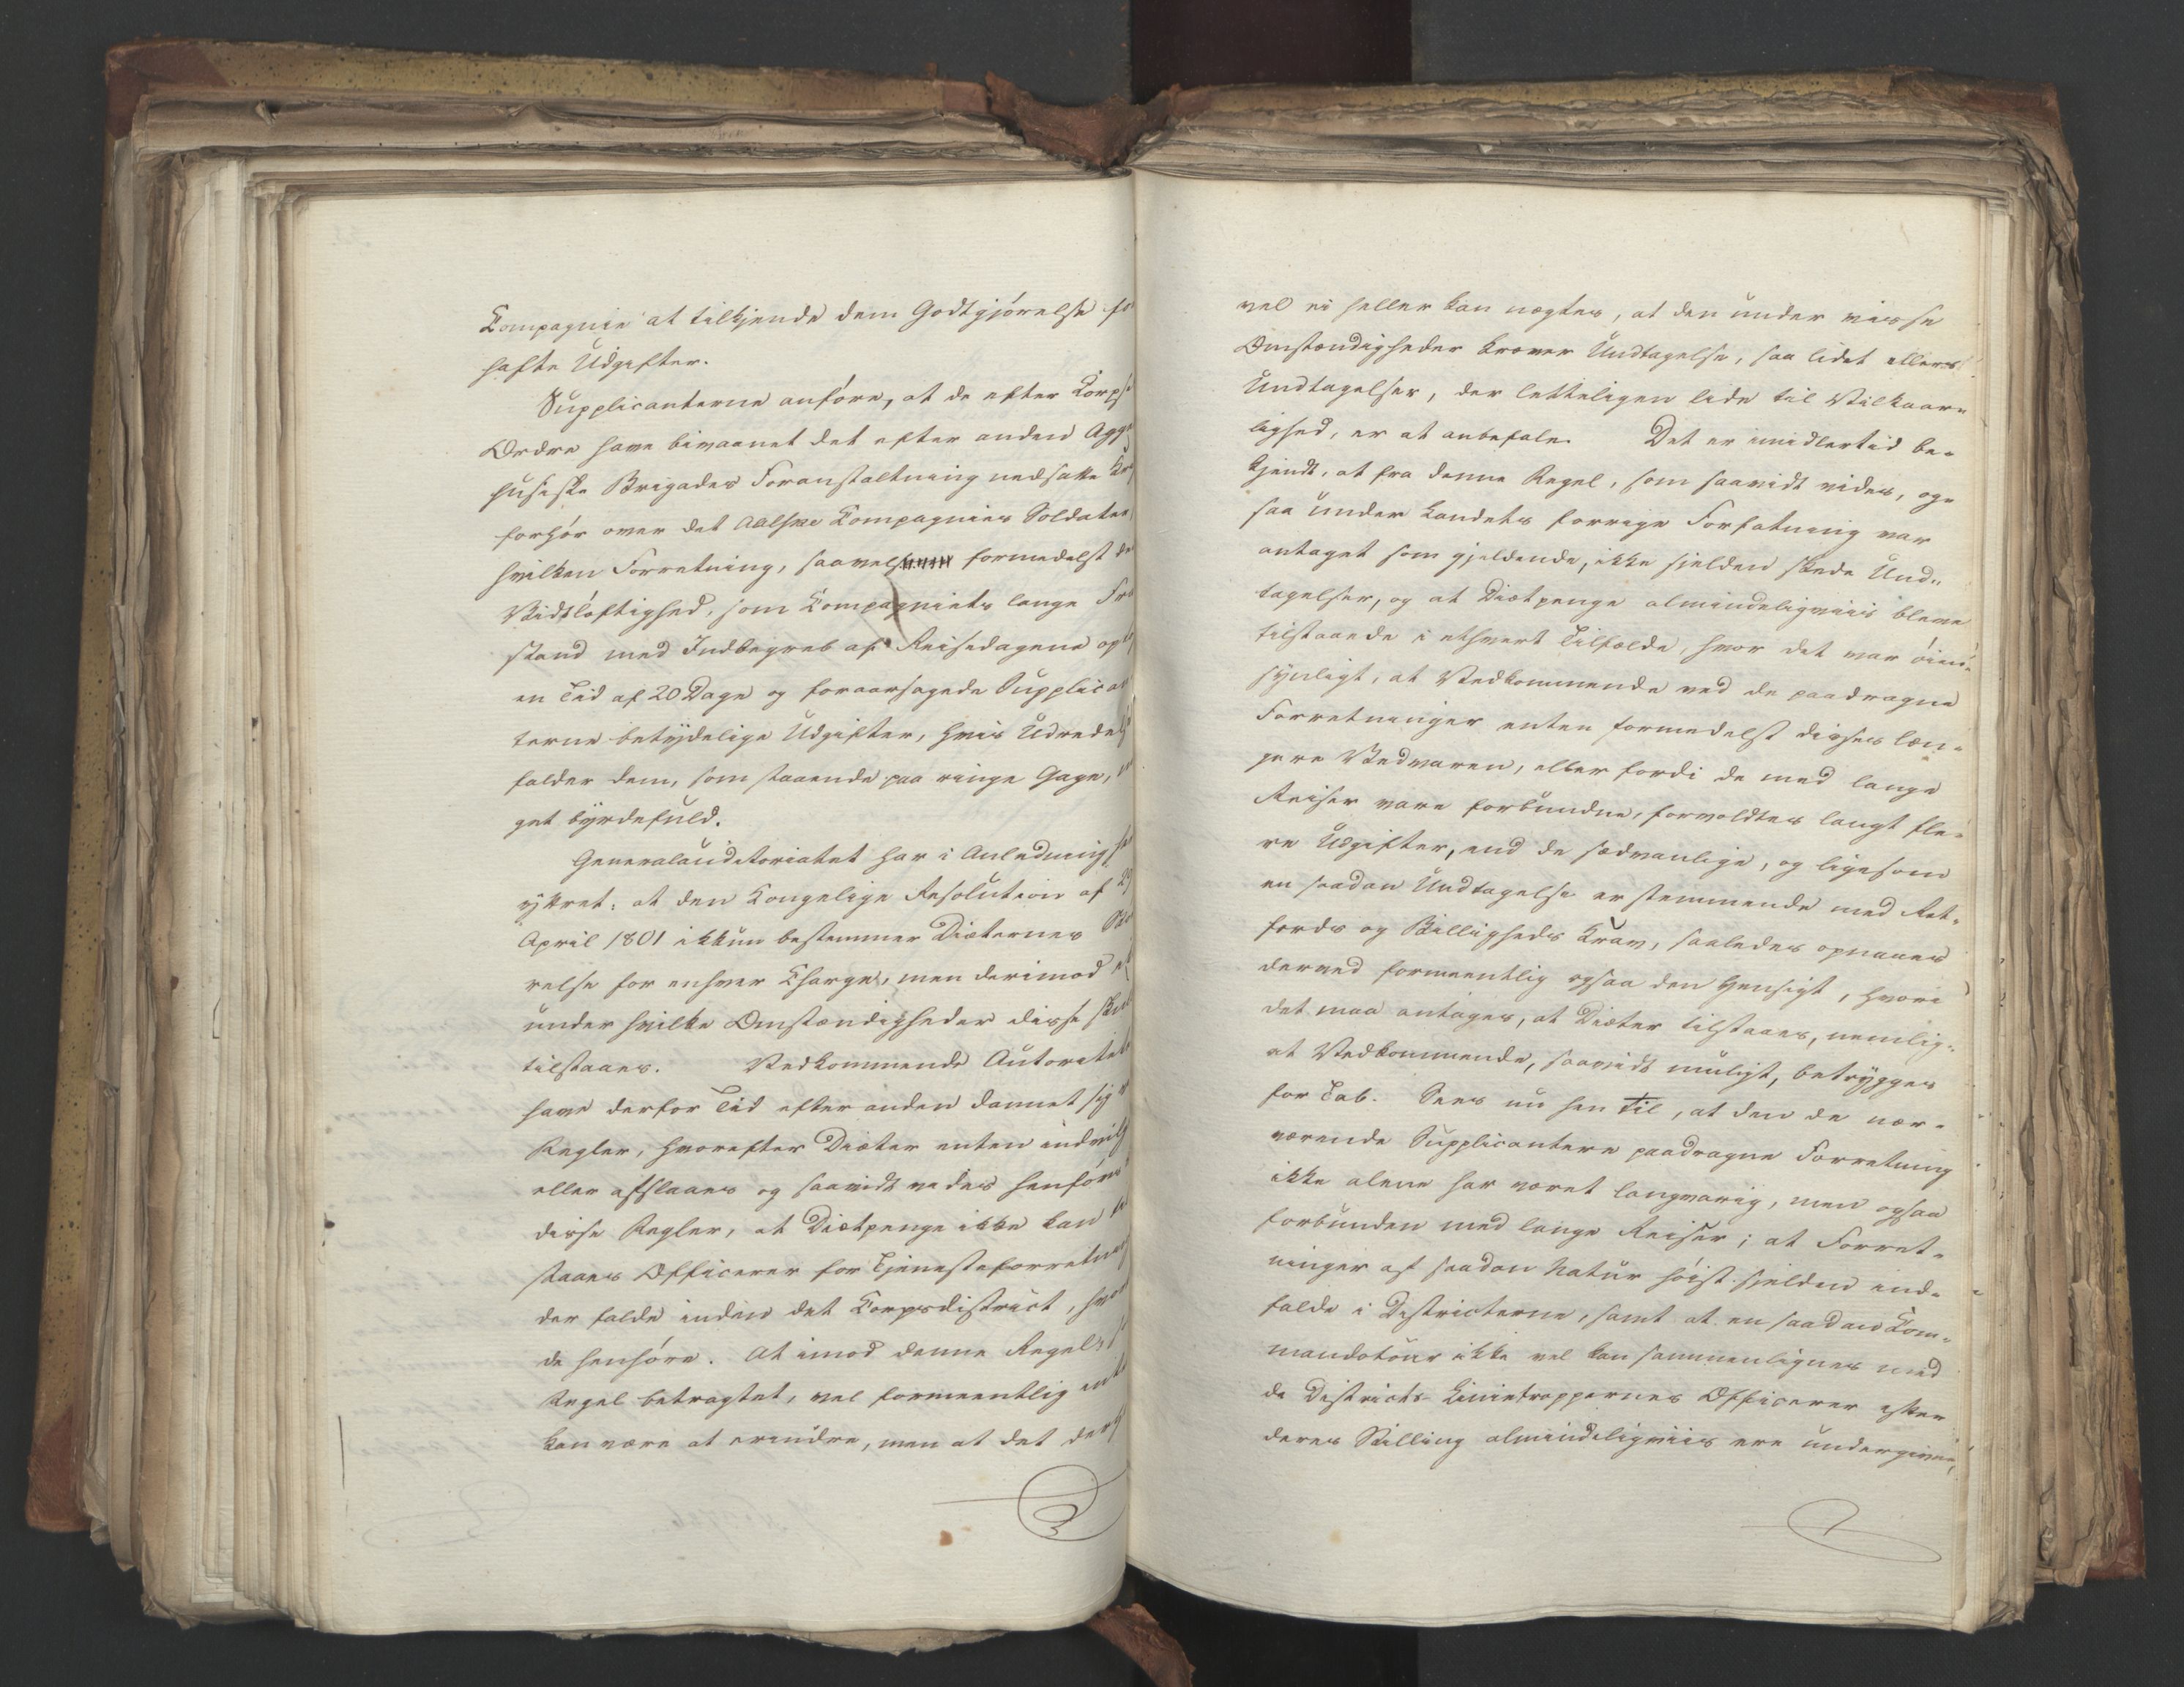 Compagnie at tilkjende dem Godtgjørelse fo
hafte Udgifter.
Supplicanterne anføre, at de efter Corps
Ordre have bivaanet det efter anden Agge
husiske Brigades Foranstaltning nedsatte
forhør over det Aalske Compagnies Soldater,
hvilken Forretning, saavel formedelst de
Vidtløftighed, som Compagniets lange Fra
stand med Indbegreb af Reisedagene opt
en Tid af 20 Dage og foraarsagede Supplican
terne betydelige Udgifter, hvis Udredelse
falder dem, som staaende paa ringe Gage,
get byrdefuld.
Generalauditoriatet har i Anledning
yttret: at den Kongelige Resolution af 29
April 1801 ikkun bestemmer Diæternes Stør
relse for enhver Charge, men derimod ei
under hvilke Omstændigheder disse skul
tilstaaes. Vedkommende Autoritet
have derfor Tid efter anden dannet sig
Regler, hvorefter Diæter enten indvilg
eller afslaaes og saavidt vides henføres
disse Regler, at Diætpenge ikke kan
staaes Officerer for Tjenesteforretning
der falde inden det Corpsdistrict, hvor
de henhøre. At imod denne Regel,
Regel betragtet, vel formeentlig intet
kan være at erindre, men at det der
vel ei heller kan nægtes, at den under visse
Omstændigheder kræver Undtagelse, saa lidet ellers
Undtagelser, der letteligen lede til Vilkaar-
lighed, er at anbefale. Det er imidlertid be-
kjendt, at fra denne Regel, som saavidt vides, og-
saa under Landets forrige Forfatning var
antaget som gjeldende, ikke sjelden skede Und-
tagelser, og at Diætpenge almindeligviis bleve
tilstaaede i ethvert Tilfælde, hvor det var øien-
synligt, at Vedkommende ved de paadragne
Forretninger enten formedelst disses læn-
gere Vedvaren, eller fordi de med lange
Reiser vare forbundne, forvoldtes langt fle-
re Udgifter, end de sædvanlige, og ligesom
en saadan Undtagelse er stemmende med Ret-
færds og Billigheds Krav, saaledes opnaaes
derved formeentlig ogsaa den Hensigt, hvori
det maa antages, at Diæter tilstaaes, nemlig:
at Vedkommende, saavidt muligt, betrygges
for Tab. Sees nu hen til, at den de nær-
værende Supplicantere paadragne Forretning
ikke alene har været langvarig, men ogsaa
forbunden med lange Reiser; at Forret-
ninger af saadan Natur høist sjelden ind-
falde i Districterne, samt at en saadan Com-
mandotour ikke vel kan sammenlignes med
de Districts Linietroppernes Officerer efter
deres Stilling almindeligviis ere undergivne,